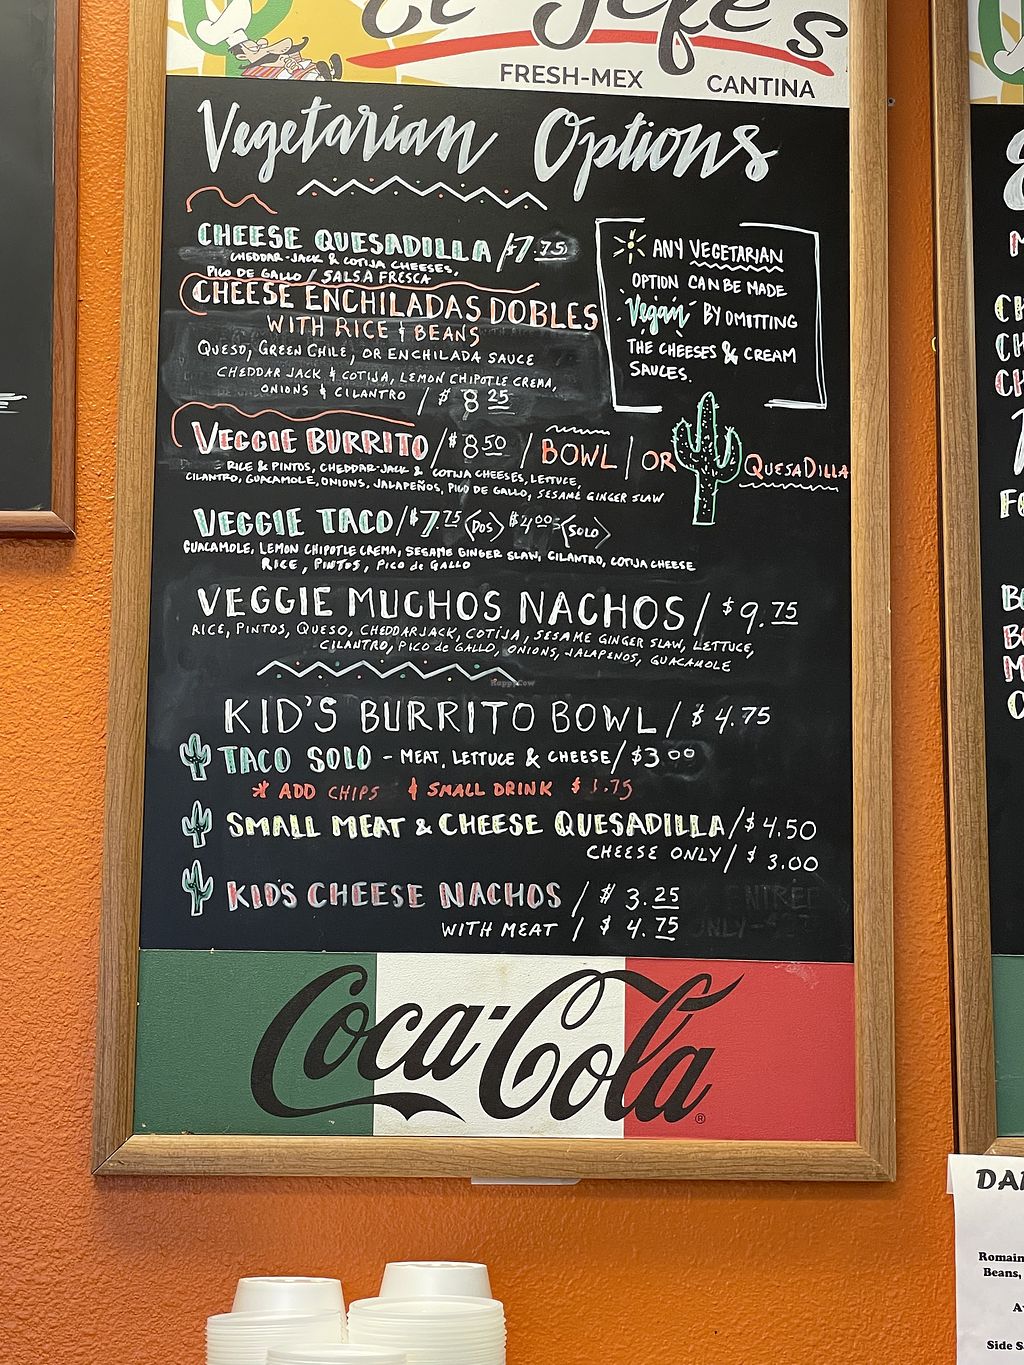 El Jefe's
FRESH-MEX CANTINA
Vegetarian Options
CHEESE QUESADILLA / $7.75
CHEDDAR-JACK & COTIJA CHEESES,
PICO DE GALLO / SALSA FRESCA
CHEESE ENCHILADAS DOBLES
WITH RICE & BEANS
QUESO, GREEN CHILE, OR ENCHILADA SAUCE
CHEDDAR JACK & COTIJA, LEMON CHIPOTLE CREMA,
ONIONS & CILANTRO / $8 25
* ANY VEGETARIAN
OPTION CAN BE MADE
Vegan BY OMITTING
THE CHEESES & CREAM
SAUCES.
VEGGIE BURRITO / $8 50 / BOWL / OR QUESADILLA
RICE & PINTOS, CHEDDAR-JACK & COTIJA CHEESES, LETTUCE,
CILANTRO, GUACAMOLE, ONIONS, JALAPEÑOS, PICO DE GALLO, SESAME GINGER SLAW
VEGGIE TACO / $7.75 <DOS> $4.00 <SOLO>
GUACAMOLE, LEMON CHIPOTLE CREMA, SESAME GINGER SLAW, CILANTRO, COTIJA CHEESE
RICE, PINTOS, PICO de GALLO
VEGGIE MUCHOS NACHOS / $9.75
RICE, PINTOS, QUESO, CHEDDARJACK, COTIJA, SESAME GINGER SLAW, LETTUCE,
CILANTRO, PICO de GALLO, ONIONS, JALAPENOS, GUACAMOLE
HappyCow
KID'S BURRITO BOWL / $4.75
TACO SOLO - MEAT, LETTUCE & CHEESE / $3 00
* ADD CHIPS & SMALL DRINK $1.75
SMALL MEAT & CHEESE QUESADILLA / $4.50
CHEESE ONLY / $3.00
KIDS CHEESE NACHOS / $3.25
WITH MEAT / $4.75
ENTRÉE
ONLY
Coca-Cola
®
Romain
Beans,
Side S